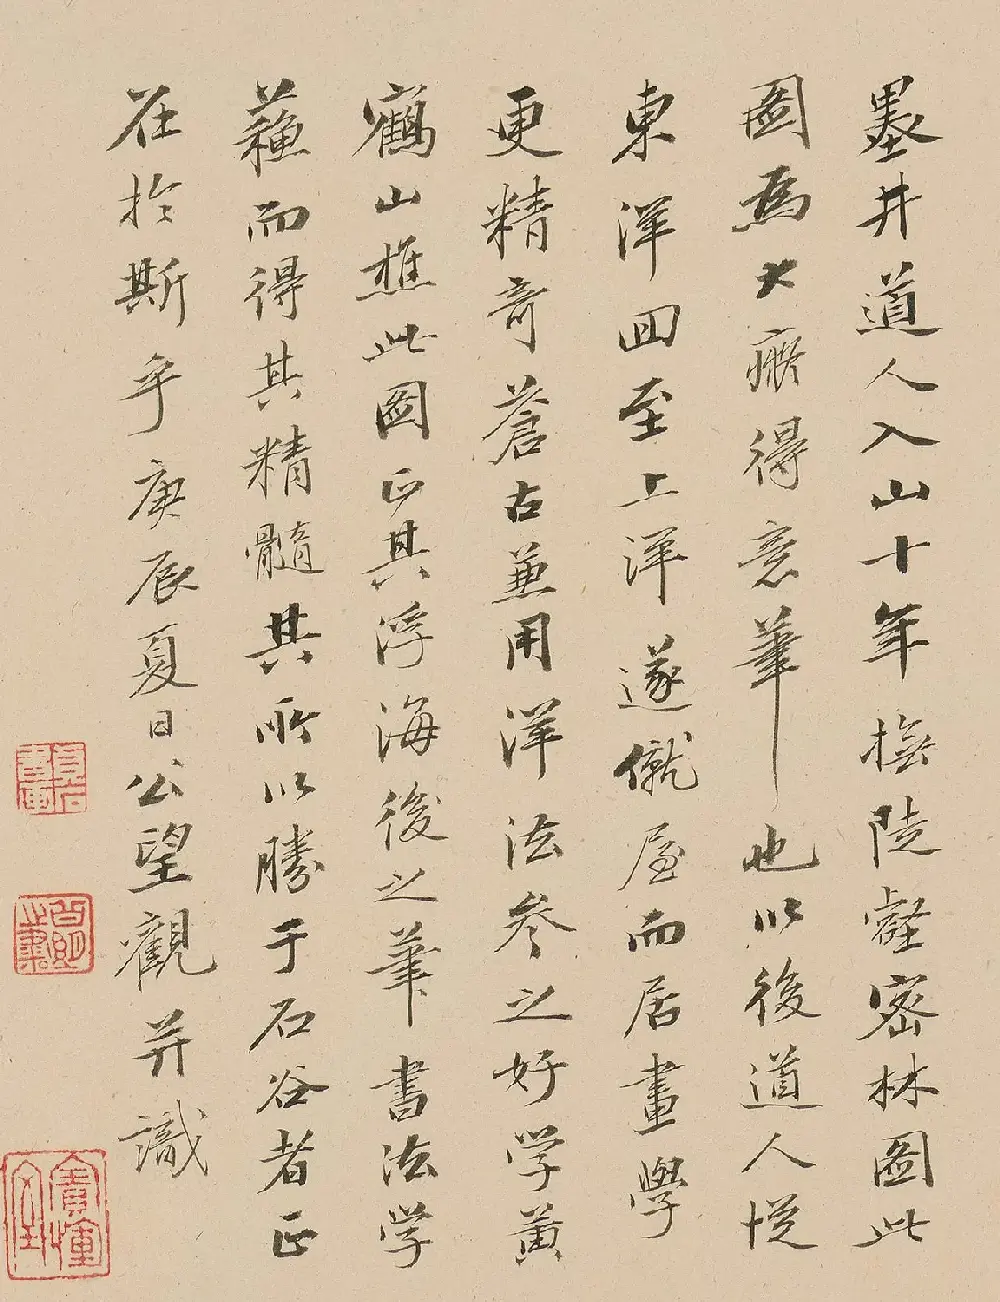 墨井道人入山十年橅陡壑密林圖此
圖為大癡得意筆也以後道人從
東洋回至上洋遂僦屋而居畫學
更精奇蒼古兼用洋法參之好學黃
鶴山樵此圖正其浮海後之筆書法學
蘇而得其精髓其所以勝于石谷者正
在於斯乎庚辰夏日公望觀并識